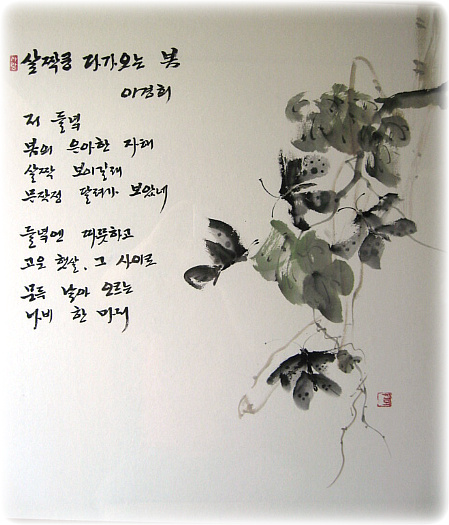 살짝쿵 다가오는 봄
이경희
저 들녘
봄의 은아한 자태
살짝 보이길래
무작정 달려가 보았네
들녘엔 따뜻하고
고운 햇살, 그 사이로
모두 날아 오르는
나비 한 마리